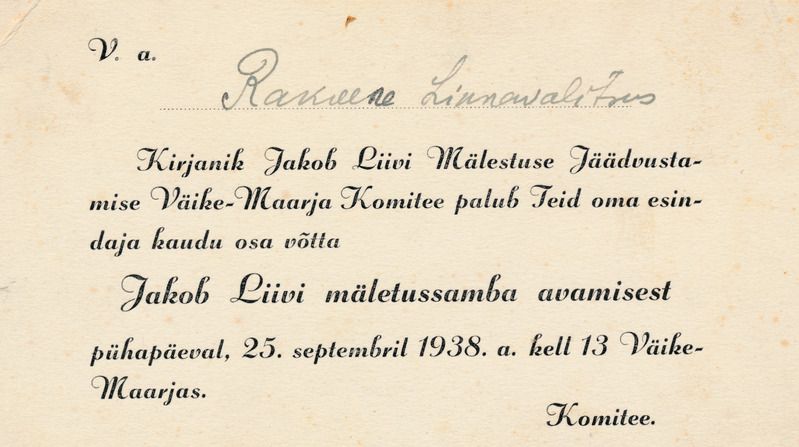 V. a.
Rakvere Linnavalitsus
Kirjanik Jakob Liivi Mälestuse Jäädvusta-
mise Väike-Maarja Komitee palub Teid oma esin-
daja kaudu osa võtta
Jakob Liivi mäletussamba avamisest
pühapäeval, 25. septembril 1938. a. kell 13 Väike-
Maarjas.
Komitee.